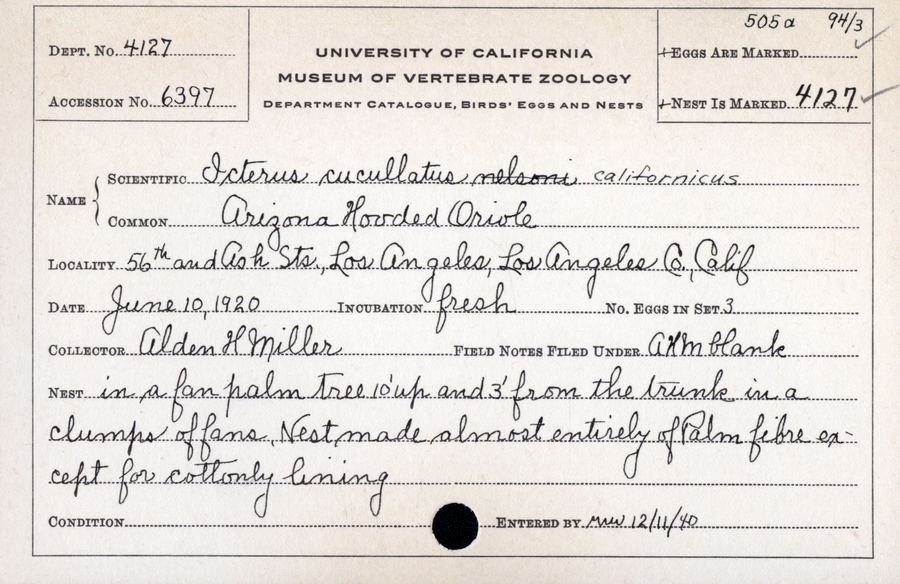 505a 94/3
DEPT. No. 4127
UNIVERSITY OF CALIFORNIA
EGGS ARE MARKED
MUSEUM OF VERTEBRATE ZOOLOGY
ACCESSION No. 6397
DEPARTMENT CATALOGUE, BIRDS' EGGS AND NESTS
NEST IS MARKED 4127
NAME
SCIENTIFIC Icterus cucullatus nelsoni californicus
COMMON Arizona Hooded Oriole
LOCALITY 56th and Ash Sts., Los Angeles, Los Angeles C., Calif
DATE June 10, 1920 INCUBATION fresh No. EGGS IN SET 3
COLLECTOR Alden H Miller FIELD NOTES FILED UNDER AHM blank
NEST in a fan palm tree 10' up and 3' from the trunk in a
clumps of fans. Nest made almost entirely of Palm fibre ex-
cept for cottonly lining
CONDITION ENTERED BY MWW 12/11/40